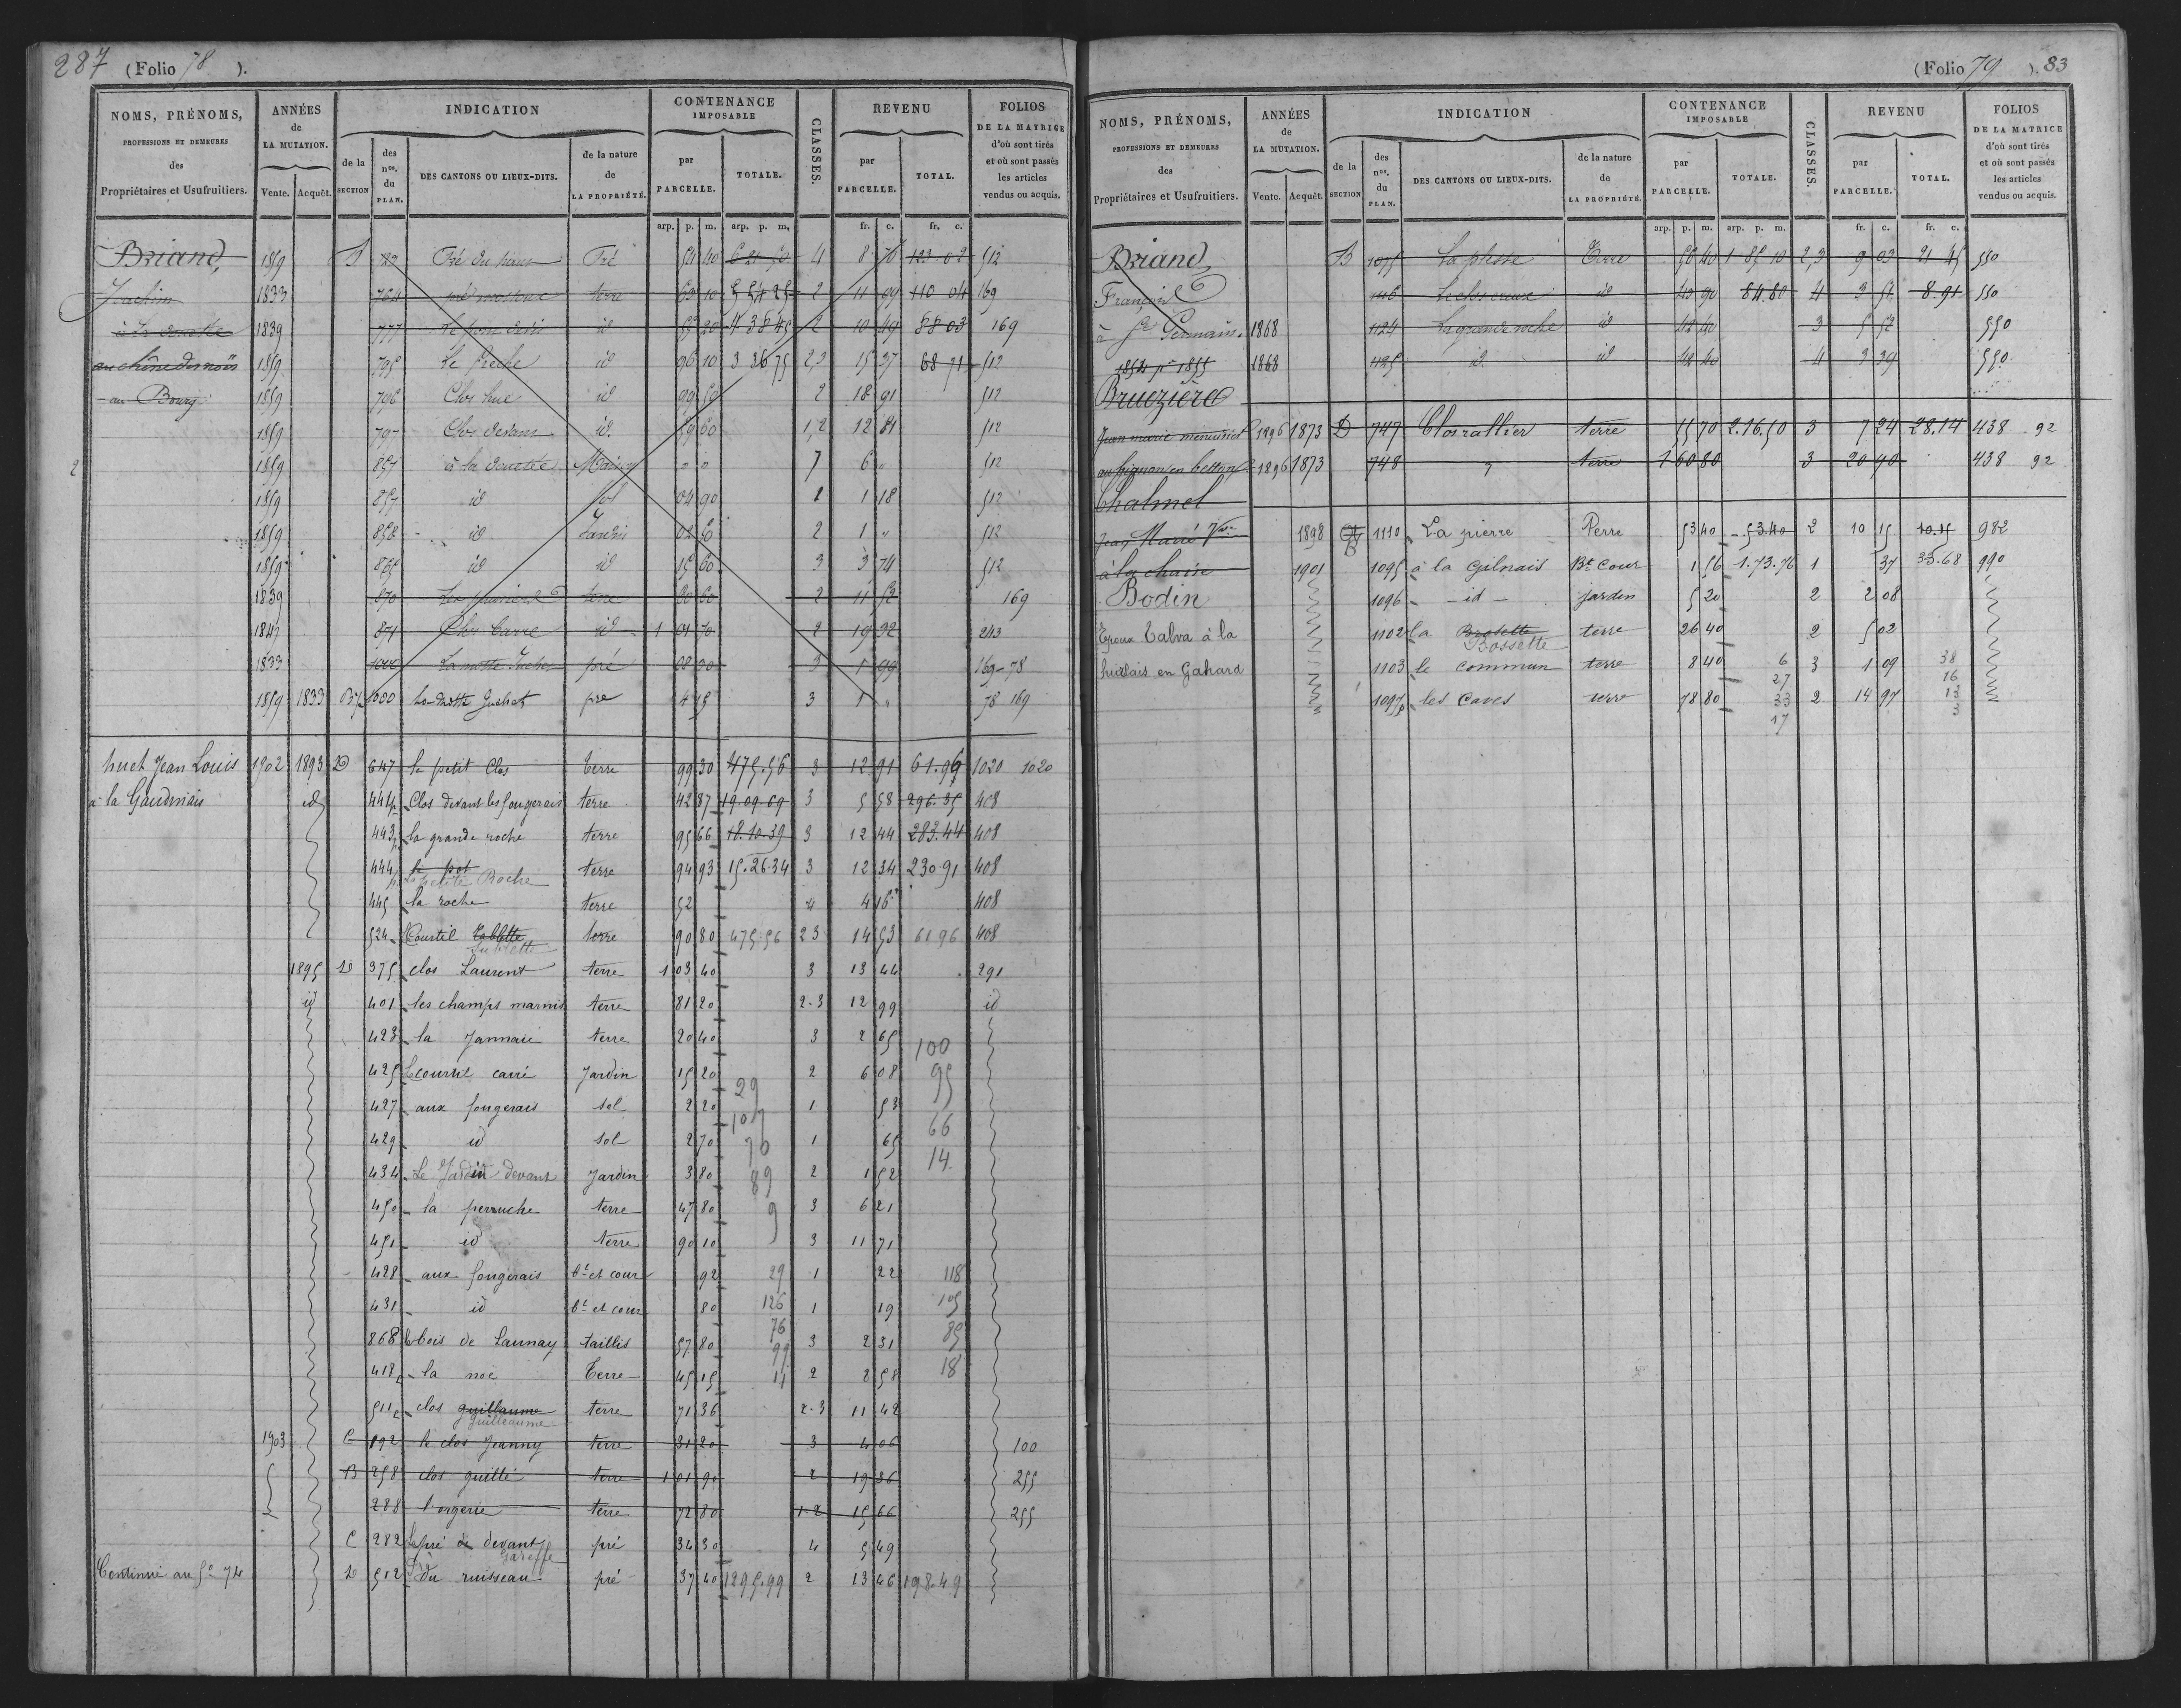 287 (Folio 78 ).
NOMS, PRÉNOMS, PROFESSIONS ET DEMEURES des Propriétaires et Usufruitiers.
ANNÉES de LA MUTATION. Vente. Acquêt.
INDICATION de la SECTION des nos. du PLAN. DES CANTONS OU LIEUX-DITS. de la nature de LA PROPRIÉTÉ.
CONTENANCE IMPOSABLE par PARCELLE. TOTALE.
CLASSES.
REVENU par PARCELLE. TOTAL.
FOLIOS DE LA MATRICE d'où sont tirés et où sont passés les articles vendus ou acquis.
arp. p. m. arp. p. m. fr. c. fr. c.
Briand, 1859 Pré du haut Pré 54 40 6 21 50 4 8 70 123 02 512
1833 764 terre 63 10 5 54 25 2 11 99 110 04 169
1839 777 id 55 20 4 38 45 2 10 49 88 03 169
1859 795 id 96 10 3 36 75 2,3 15 37 68 71 512
au Bourg 1859 796 Clos id 99 50 2 18 91 512
1859 797 Clos devant id. 59 60 1,2 12 81 512
2 1859 857 Maison " " 7 6 " 512
1859 857 id sol 04 90 1 1 18 512
1859 858 id Jardin 02 50 2 1 " 512
1859 865 id id 15 60 3 3 74 512
1839 870 terre 60 60 2 11 52 169
1847 871 Clos Carré id 1 01 70 2 19 32 243
1833 pré 08 30 3 1 99 169-78
1859 1833 1000 pre 4 15 3 1 " 78 169
huet Jean Louis 1902 1893 D 647 le petit Clos terre 99 30 475.56 3 12 91 61.96 1020 1020
à la Gaudinais id 444 Clos devant les fougerais terre 42 87 19.09.69 3 5 58 296.35 408
443 la grande roche terre 95 66 18.10.39 3 12 44 283.44 408
444 La petite Roche terre 94 93 15.26.34 3 12 34 230.91 408
445 la roche terre 52 4 4 16 408
524 Courtil Tablette terre 90 80 475.56 2 3 14 53 61 96 408
1895 D 375 clos Laurent terre 1 03 40 3 13 44 291
id 401 les champs marnis terre 81 20 2-3 12 99 id
423 la Jannaie terre 20 40 3 2 65 100
425 le courtil carré Jardin 15 20 29 2 6 08 95
427 aux fougerais sol 2 20 107 1 53 66
429 id sol 2 70 76 1 65 14
434 Le Jardin devant Jardin 3 80 89 2 1 52
450 la perruche terre 47 80 9 3 6 21
451 id terre 90 10 3 11 71
428 aux fougerais bt et cour 92 29 1 22 118
431 id bt et cour 80 126 1 19 105
868 le bois de Launay taillis 57 80 76 3 2 31 85
418 la noë Terre 45 15 2 8 58 18
511 clos guillaume guilleaume terre 71 36 2-3 11 42
1903 C 192 le clos Jeanny terre 31 20 3 4 06 100
B 258 clos guillé terre 1 01 90 2 19 36 255
288 l'orgerie terre 72 80 1-2 15 66 255
C 282 le pré de devant pré 34 30 4 5 49
Continué au fo 74 D 512 du ruisseau pré 37 40 1295.99 2 13 46 198.49
(Folio 79 ). 83
NOMS, PRÉNOMS, PROFESSIONS ET DEMEURES des Propriétaires et Usufruitiers.
ANNÉES de LA MUTATION. Vente. Acquêt.
INDICATION de la SECTION des nos. du PLAN. DES CANTONS OU LIEUX-DITS. de la nature de LA PROPRIÉTÉ.
CONTENANCE IMPOSABLE par PARCELLE. TOTALE.
CLASSES.
REVENU par PARCELLE. TOTAL.
FOLIOS DE LA MATRICE d'où sont tirés et où sont passés les articles vendus ou acquis.
arp. p. m. arp. p. m. fr. c. fr. c.
Briand, B 1075 Terre 50 40 1 85 10 2,3 9 03 21 45 550
François Le clos creux id 43 90 84.80 4 3 51 8.91 550
à St Germain. 1868 1124 La grande roche id 42 40 3 5 52 550
1854 pr 1855 1868 1125 id. id 42 40 4 3 39 550
Bruezière
Jean marie menuisier 1896 1873 D 747 Clos rallier terre 55 70 2.16.50 3 7 24 28.14 438 92
au pignon en betton 1896 1873 748 terre 1 60 80 3 20 90 438 92
Chalmel
Jean Marie 1898 B 1110 La pierre Terre 53 40 53.40 2 10 15 10.15 982
à la chaise 1901 1095 à la Gilnais Bt Cour 1 56 1.73.76 1 37 33.68 990
Bodin 1096 id jardin 5 20 2 2 08
Epoux Talva à la 1102 la Brosette Bossette terre 26 40 2 5 02
huolais en Gahard 1103 le commun terre 8 40 6 3 1 09 38
27 16
1097p les Caves terre 78 80 33 2 14 97 13
17 3